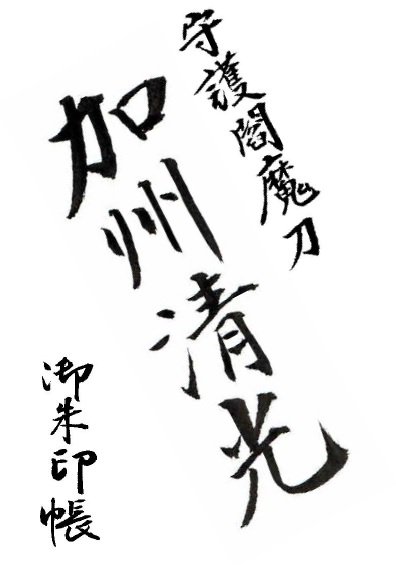 守護閻魔刀
加州清光
御朱印帳